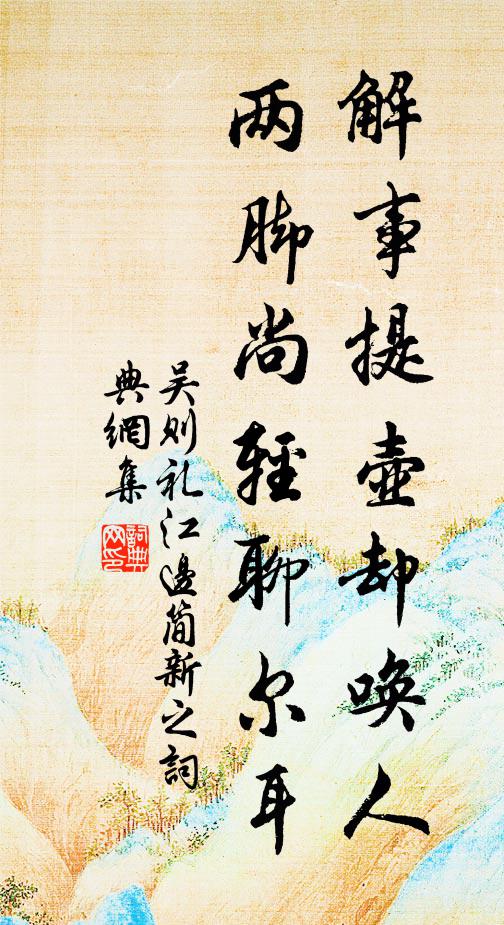 解事提壶却唤人
两脚尚轻聊尔耳
吴则礼江边简新之词
典網集
詞典
网印